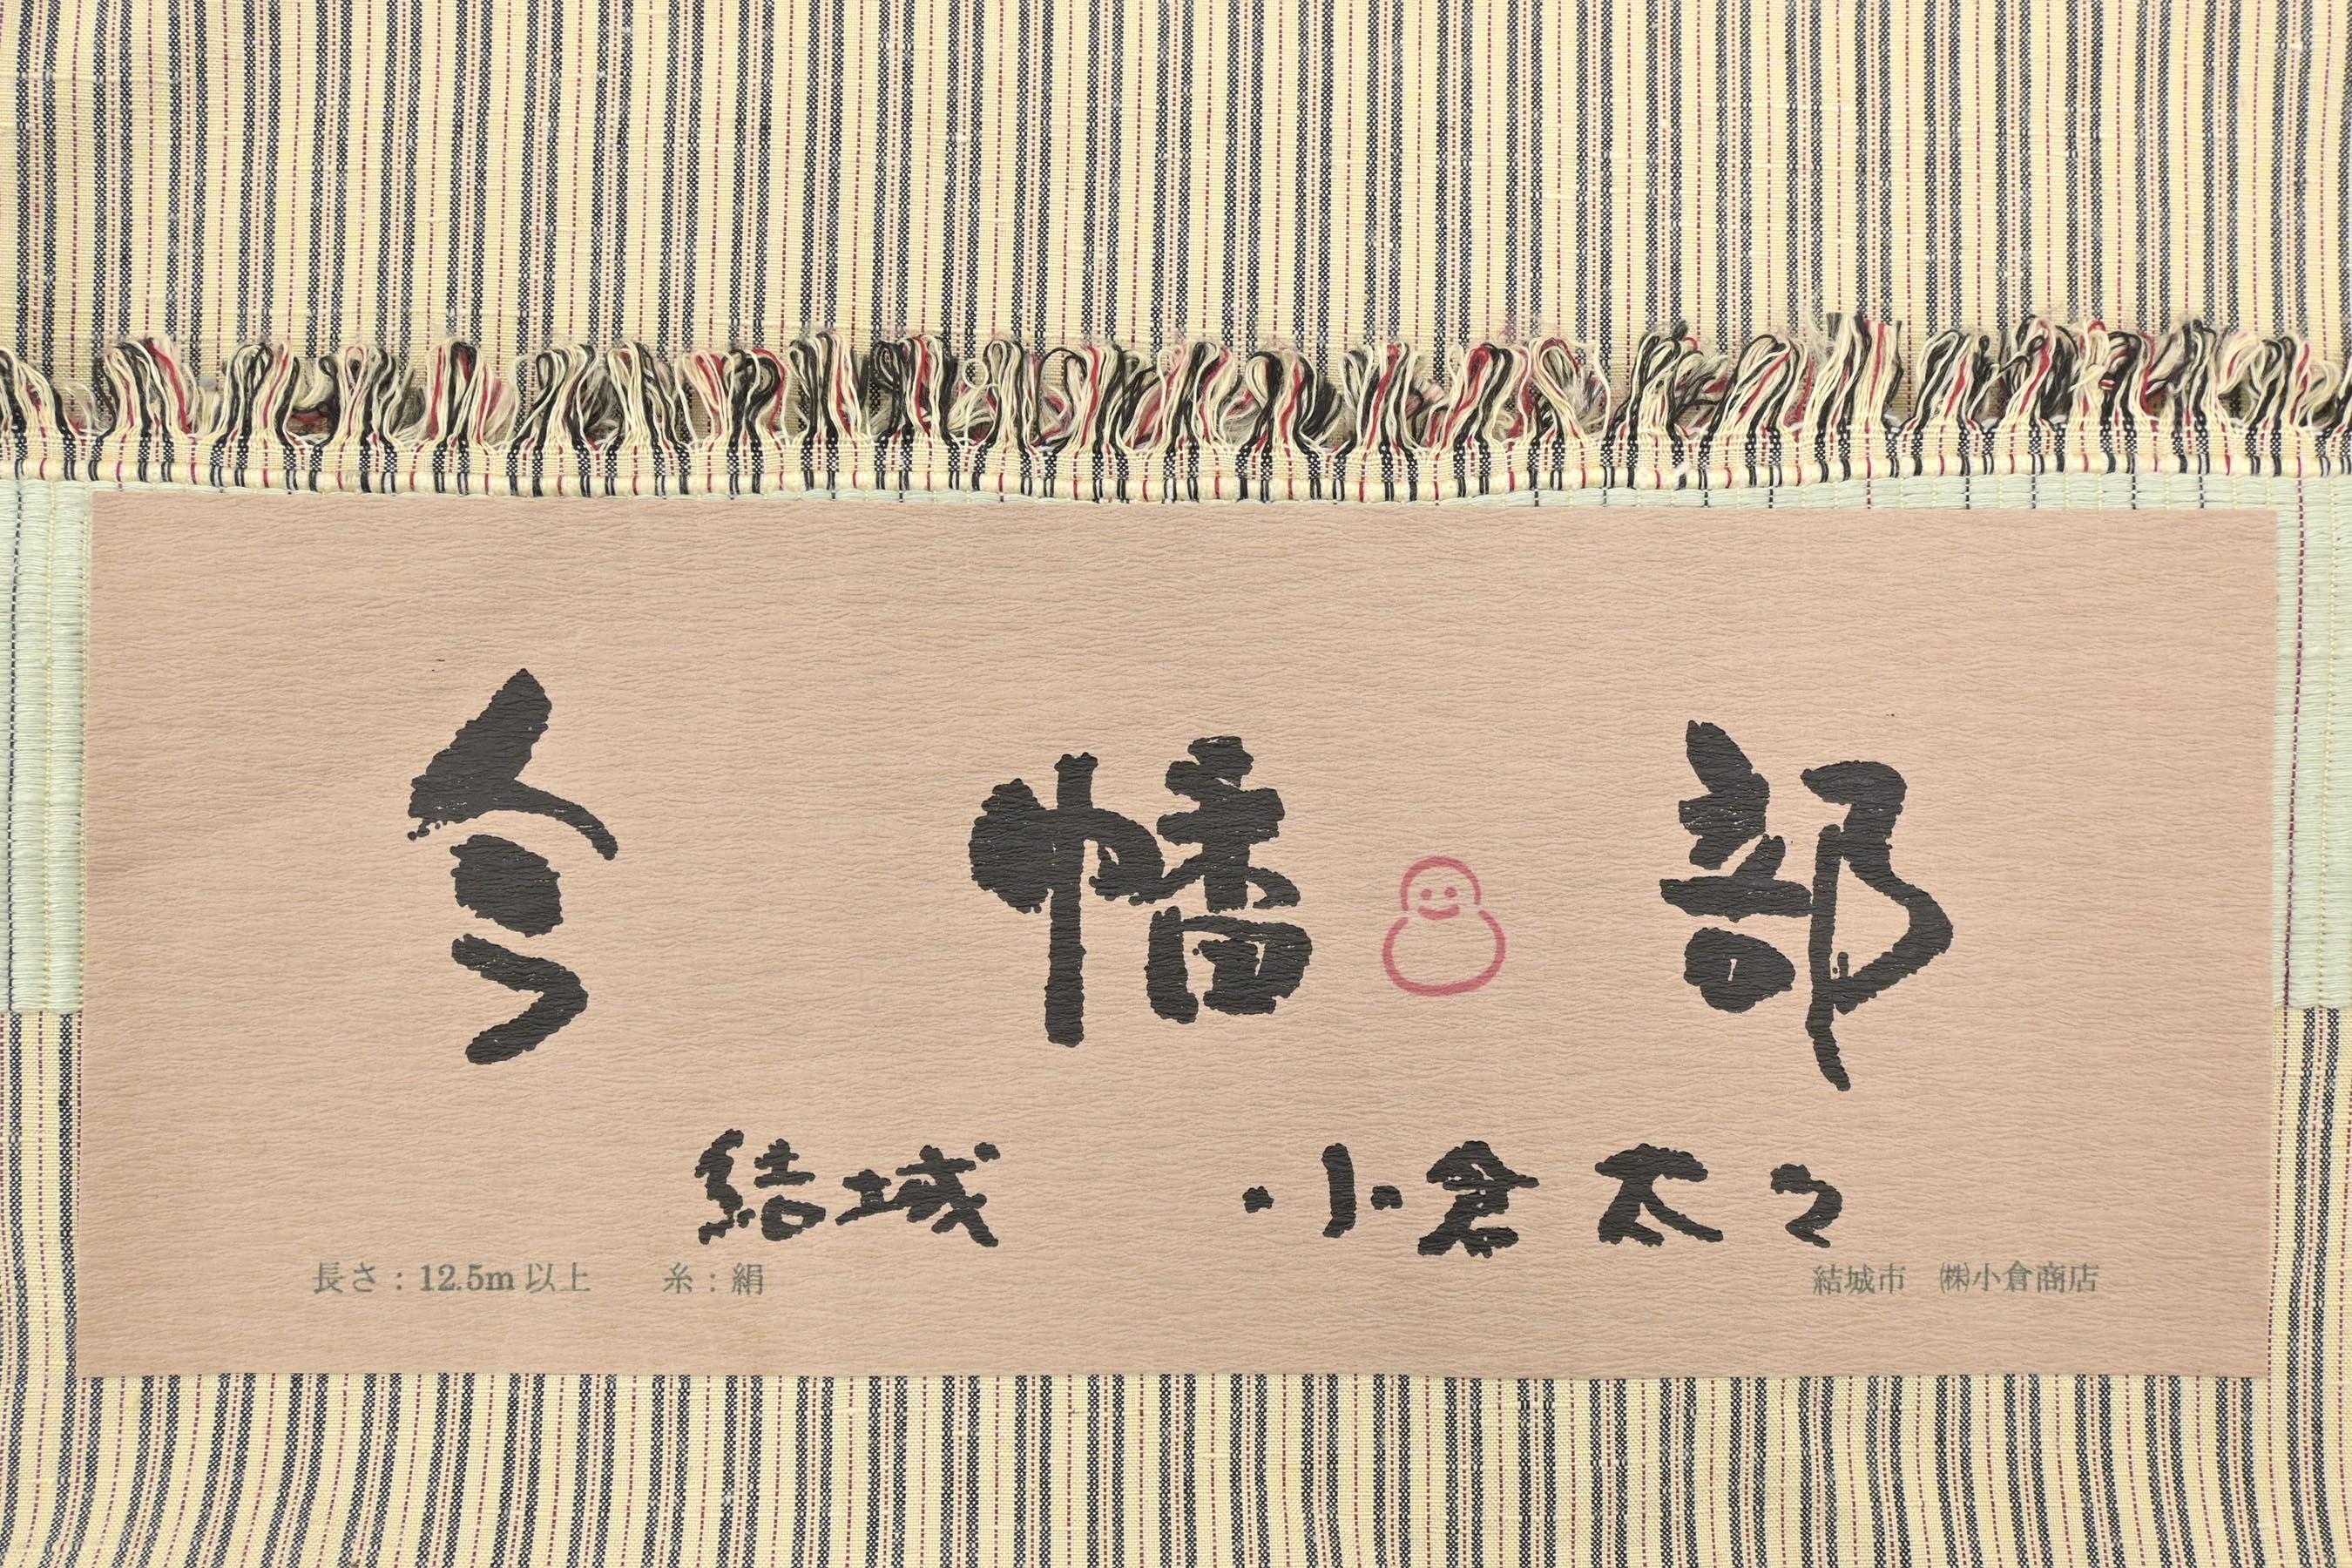 今 幡 部
結城 ・小倉太々
長さ：12.5m以上 糸：絹 結城市 ㈱小倉商店